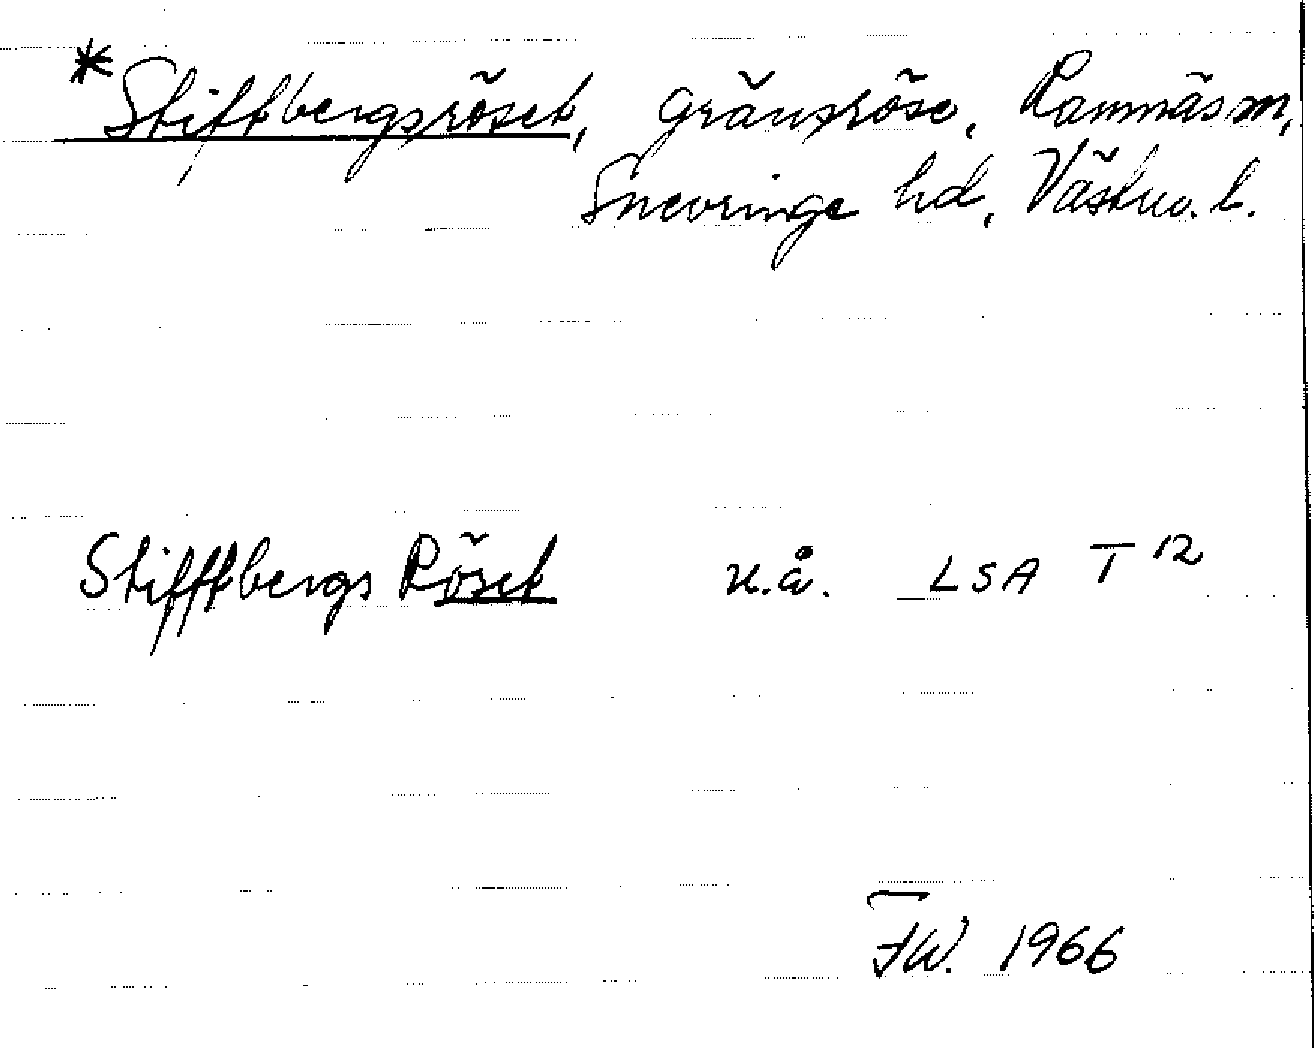 * Stiftbergsröset, gränsröse, Ramnäs sn,
Snevringe hd, Västm. l.
Stifftbergs Röset u.å. LSA T 12
FW. 1966